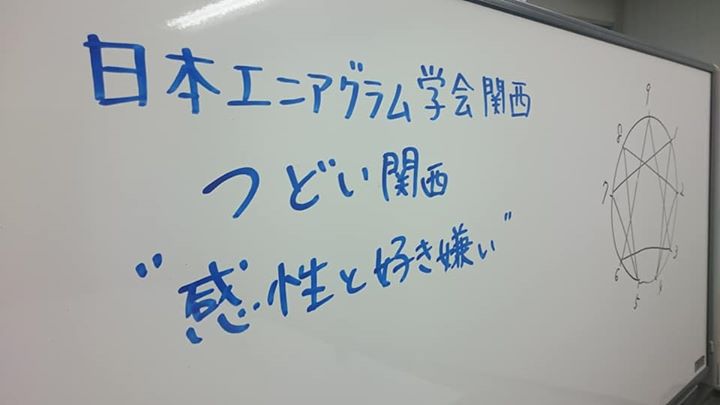 日本エニアグラム学会関西
つどい関西
"感性と好き嫌い"
9
8
1
7
2
6
3
5
4